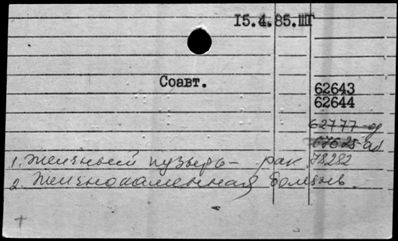 15.4.85.ШГ
Соавт.
62643
62644
62777-д
67625-ад
1. Желчный пузырь - рак. 78282
2. Желчнокаменная болезнь.